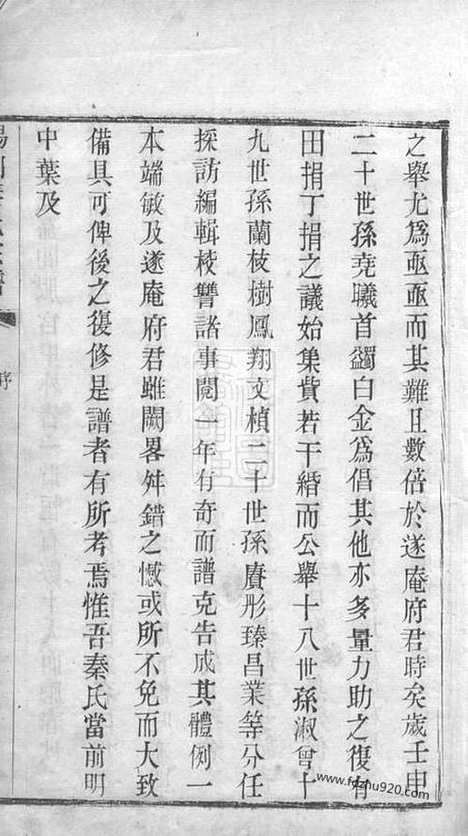 之舉尤為亟亟而其難且數倍於遂庵府君時矣歲壬申
二十世孫堯曦首蠲白金為倡其他亦多量力助之復有
田捐丁捐之議始集貲若干緡而公舉十八世孫淑曾十
九世孫蘭枝樹鳳翔文楨二十世孫賡彤臻昌業等分任
採訪編輯校讐諸事閱一年有奇而譜克告成其體例一
本端敏及遂庵府君雖闕畧舛錯之憾或所不免而大致
備具可俾後之復修是譜者有所考焉惟吾秦氏當前明
中葉及
序
www.fozhu920.com